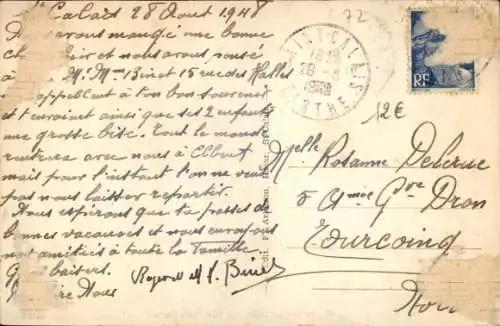 St Calais 28 Aout 1948
avons mangé une bonne
et nous avons pensé
à M. Mme Binet 15 rue des Halles
rappellent à ton bon souvenir
et t'envoient ainsi que ses 2 enfants
une grosse bise. Tout le monde
rentrera avec nous à Elbeuf
mais pour l'instant l'on ne veut
pas nous laisser repartir.
Nous espérons que tu passes de
bonnes vacances et nous envoyons
nos amitiés à toute la famille
Gros baisers.
72
SAINT-CALAIS
28-8
1948
SARTHE
RF
12€
Melle Rosanne Delerue
5 Gve Dron
Tourcoing
Nord